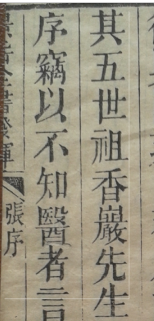 其五世祖香巖先生
序竊以不知醫者言
張序